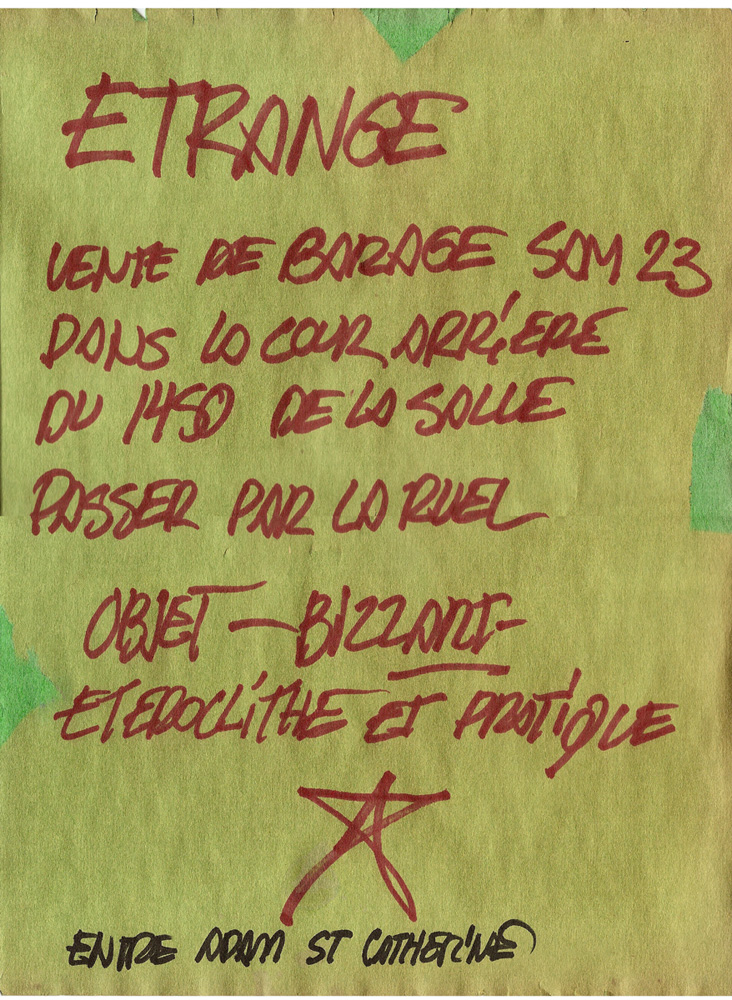 ETRANGE
VENTE DE BARAGE SAM 23
DANS LA COUR ARRIÈRE
DU 1450 DE LA SALLE
PASSER PAR LA RUEL
OBJET - BIZZART -
ETEROCLITHE ET PRATIQUE
ENTRE ADAM ST CATHERINE